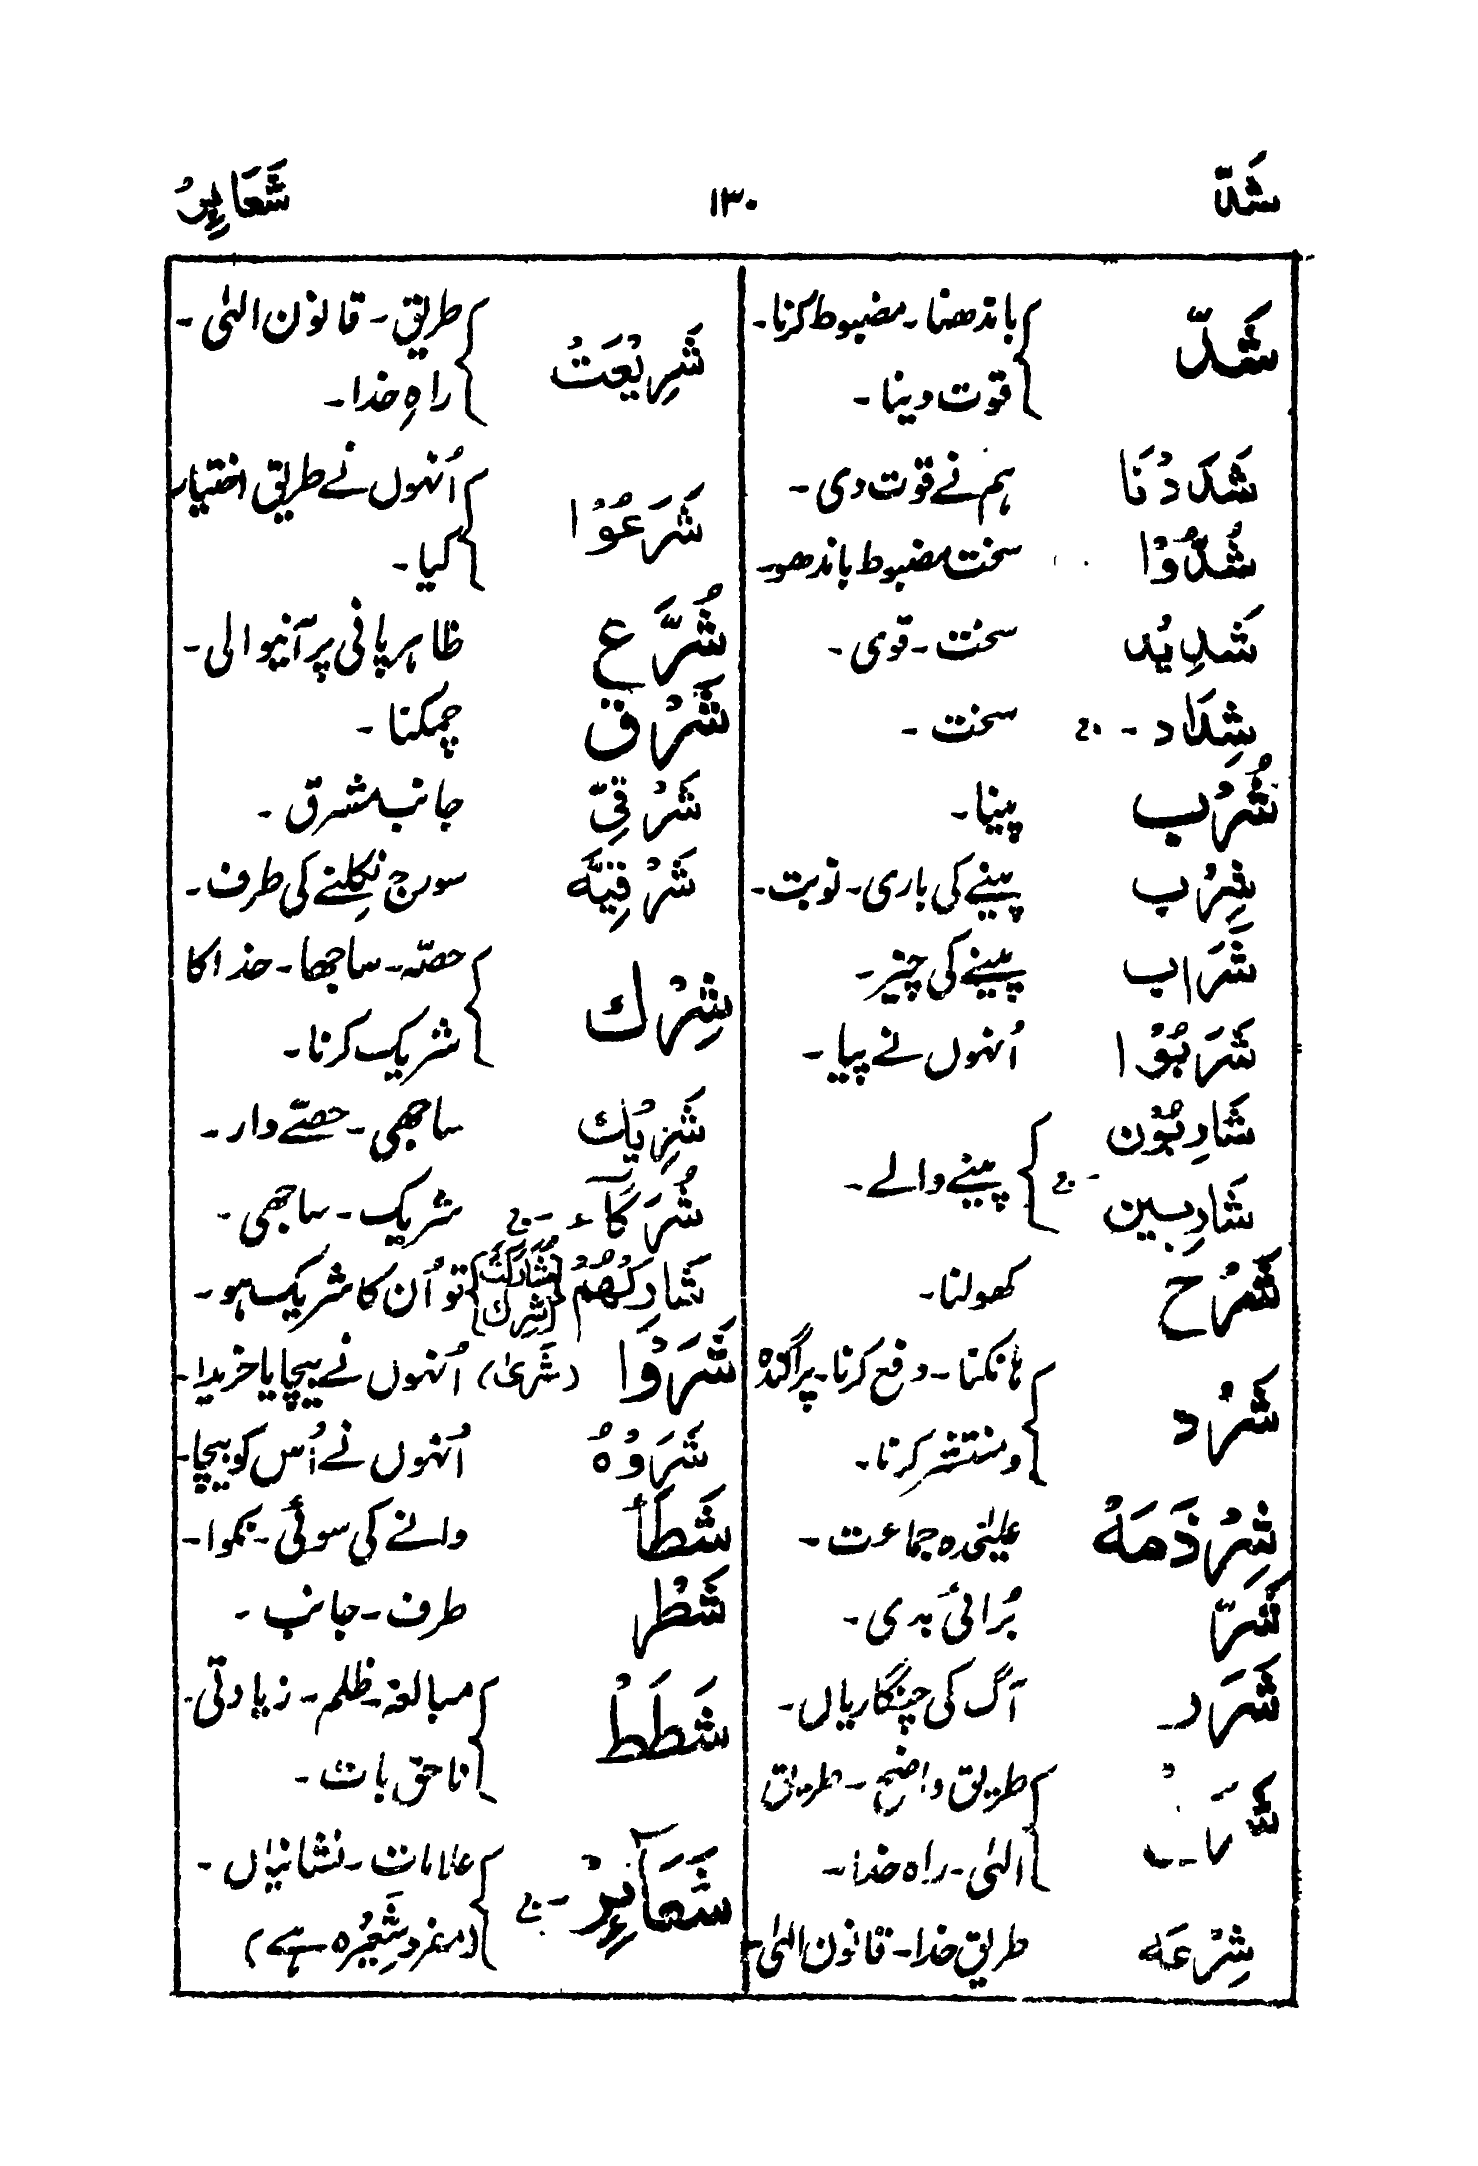 شَدّ ۱۳۰ شَعَایِرُ
شَدّ باندھنا۔ مضبوط کرنا۔
قوت دینا۔
شَدَدْنَا ہم نے قوت دی۔
شُدُّوْا سخت مضبوط باندھو۔
شَدِیْد سخت۔ قوی۔
شِدَاد۔ ج سخت۔
شُرْب پینا۔
شِرْب پینے کی باری۔ نوبت۔
شَرَاب پینے کی چیز۔
شَرَبُوْا اُنہوں نے پیا۔
شَارِبُوْن
ج۔ پینے والے۔
شَارِبِین
شَرْح کھولنا۔
شَرْد ہانکنا۔ دفع کرنا۔ پراگندہ
و منتشر کرنا۔
شِرْذَمَهْ علیٰحدہ جماعت۔
شَرّ بُرائی بدی۔
شَرَر آگ کی چنگاریاں۔
طریق واضح۔ طریق
الہٰی۔ راہ خدا۔
شِرْعَه طریق خدا۔ قانون الہٰی۔
شَرِیْعَتُ طریق۔ قانون الہٰی۔
راہِ خدا۔
شَرَعُوْا اُنہوں نے طریق اختیار
کیا۔
شُرَّع ظاہر پانی پر آنیوالی۔
شَرْق چمکنا۔
شَرْقِیّ جانب مشرق۔
شَرْقِیَّه سورج نکلنے کی طرف۔
شِرْك حصّہ۔ ساجھا۔ خدا کا
شریک کرنا۔
شَرِیْك ساجھی۔ حصّے دار۔
شُرَكَآء۔ ج شریک۔ ساجھی۔
شَارِكْهُمْ (مُشَارَكَت شِرك) تو اُن کا شریک ہو۔
شَرَوْا (شَرٰی) اُنہوں نے بیچا یا خریدا۔
شَرَوْهُ اُنہوں نے اُس کو بیچا۔
شَطَأَ دانے کی سوئی۔ نموا۔
شَطْر طرف۔ جانب۔
شَطَطْ مبالغہ۔ ظلم۔ زیادتی۔
ناحق بات۔
شَعَآئِرْ۔ ج علامات۔ نشانیاں۔
(مفرد شَعِیْرہ ہے)